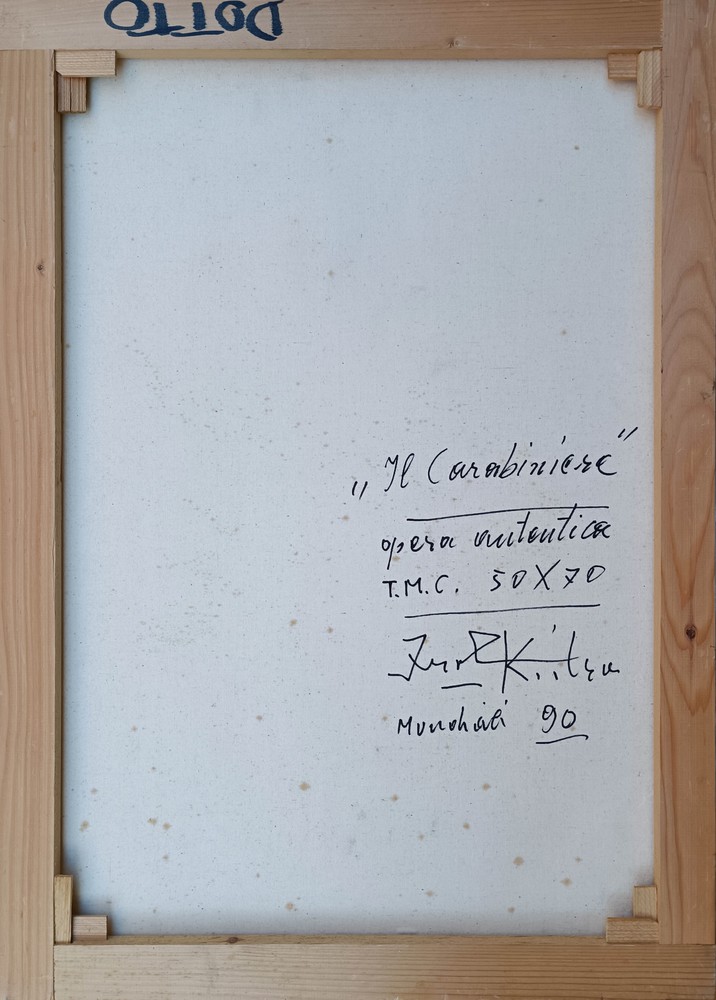 DOTTO
„Il Carabiniere"
opera autentica
T.M.C. 50X70
Mundiali 90